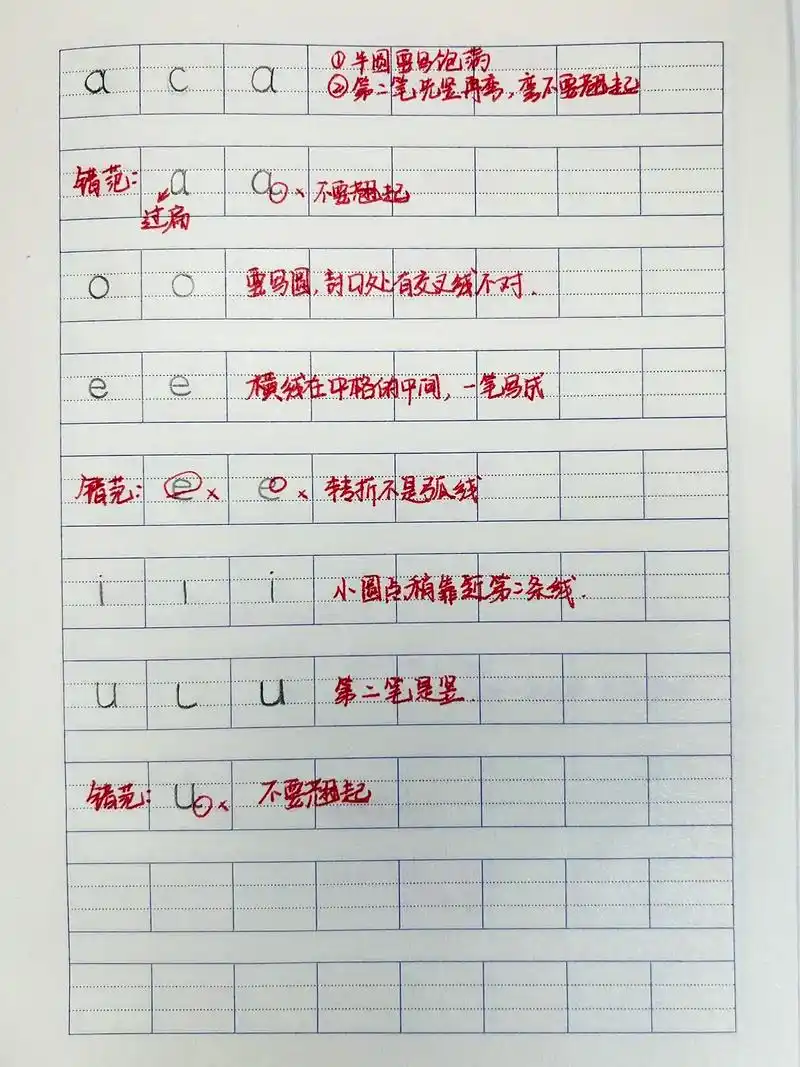 a c a ①半圆要写饱满
②第二笔先竖再弯，弯不要翘起
错范: a a × 不要翘起
过扁
o o 要写圆，封口处有交叉线不对.
e e 横线在中格的中间，一笔写成
错范: e × e × 转折不是弧线
i ı i 小圆点稍靠近第二条线.
u ɩ u 第二笔是竖
错范: u × 不要翘起